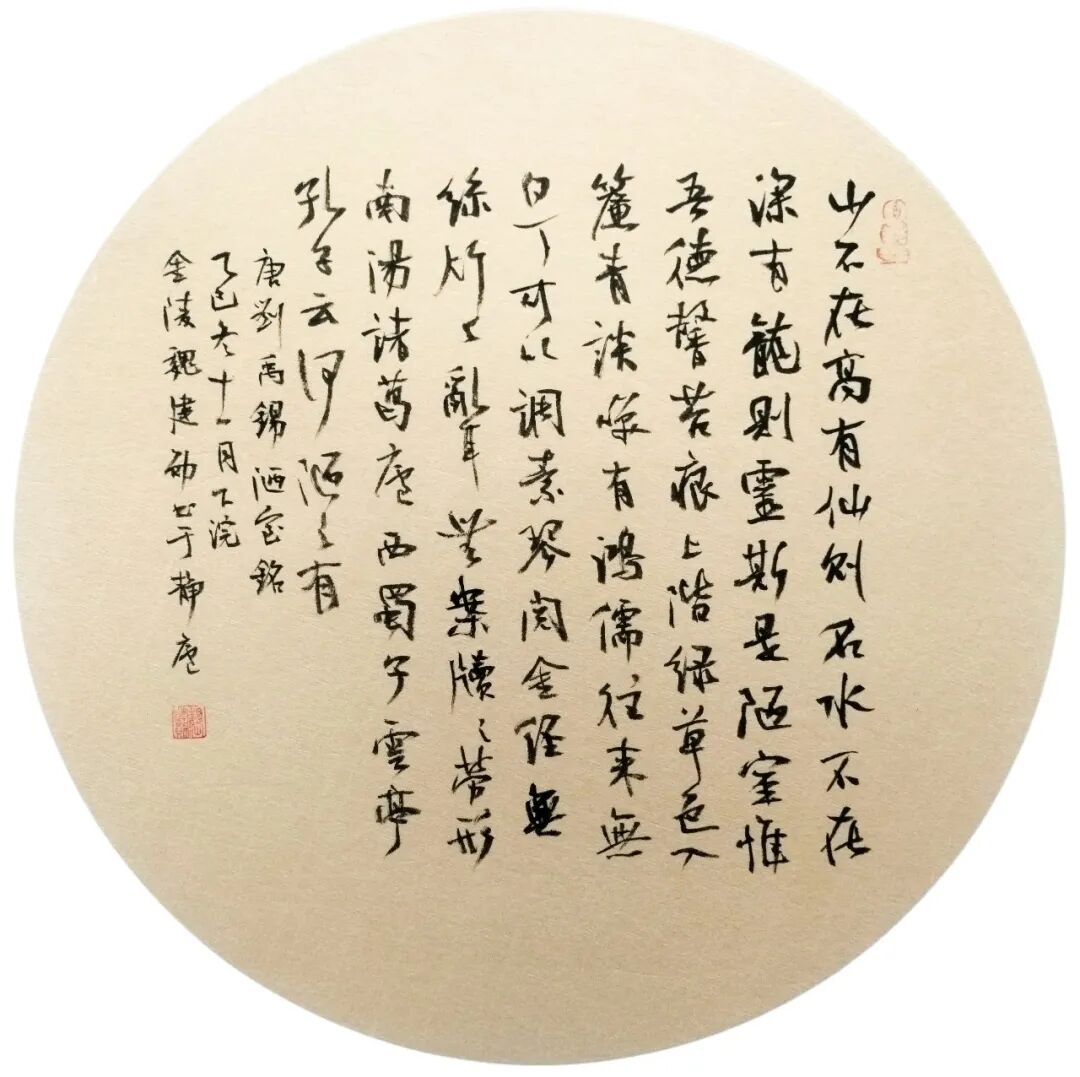 山不在高有仙則名水不在
深有龍則靈斯是陋室惟
吾德馨苔痕上階緑草色入
簾青談咲有鴻儒往来無
白丁可以調素琴閲金經無
絲竹之亂耳無案牘之勞形
南陽諸葛廬西蜀子雲亭
孔子云何陋之有
唐劉禹錫陋室銘
乙巳冬十一月下浣
金陵魏建書于静廬